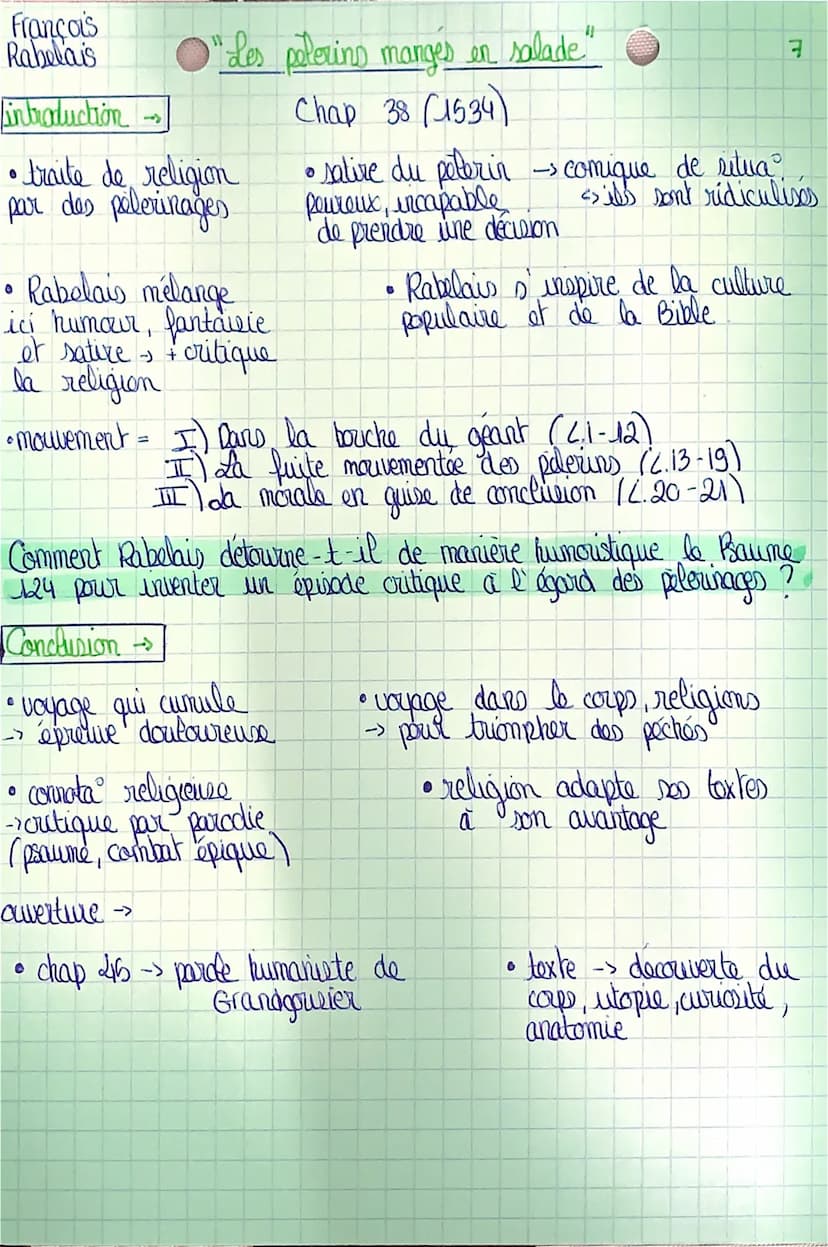 François
Rabelais
"Les pèlerins mangés en salade"
7
introduction →
Chap 38 (1534)
• traite de religion
par des pèlerinages
• satire du pèlerin → comique de situa°
peureux, incapable ↔ ils sont ridiculisés
de prendre une décision
• Rabelais mélange
ici humour, fantaisie
et satire → + critique
la religion
• Rabelais s'inspire de la culture
populaire et de la Bible
• mouvement = I) Dans la bouche du géant (L.1-12)
II) La fuite mouvementée des pèlerins (L.13-19)
III) La morale en guise de conclusion (L.20-21)
Comment Rabelais détourne-t-il de manière humoristique le Psaume
124 pour inventer un épisode critique à l'égard des pèlerinages ?
Conclusion →
• voyage qui cumule
→ épreuve douloureuse
• voyage dans le corps, religions
→ pour triompher des péchés
• connota° religieuse
→ critique par parodie
(psaume, combat épique)
• religion adapte ses textes
à son avantage
ouverture →
• chap 45 → parole humaniste de
Grandgousier
• texte → découverte du
corps, utopie, curiosité,
anatomie